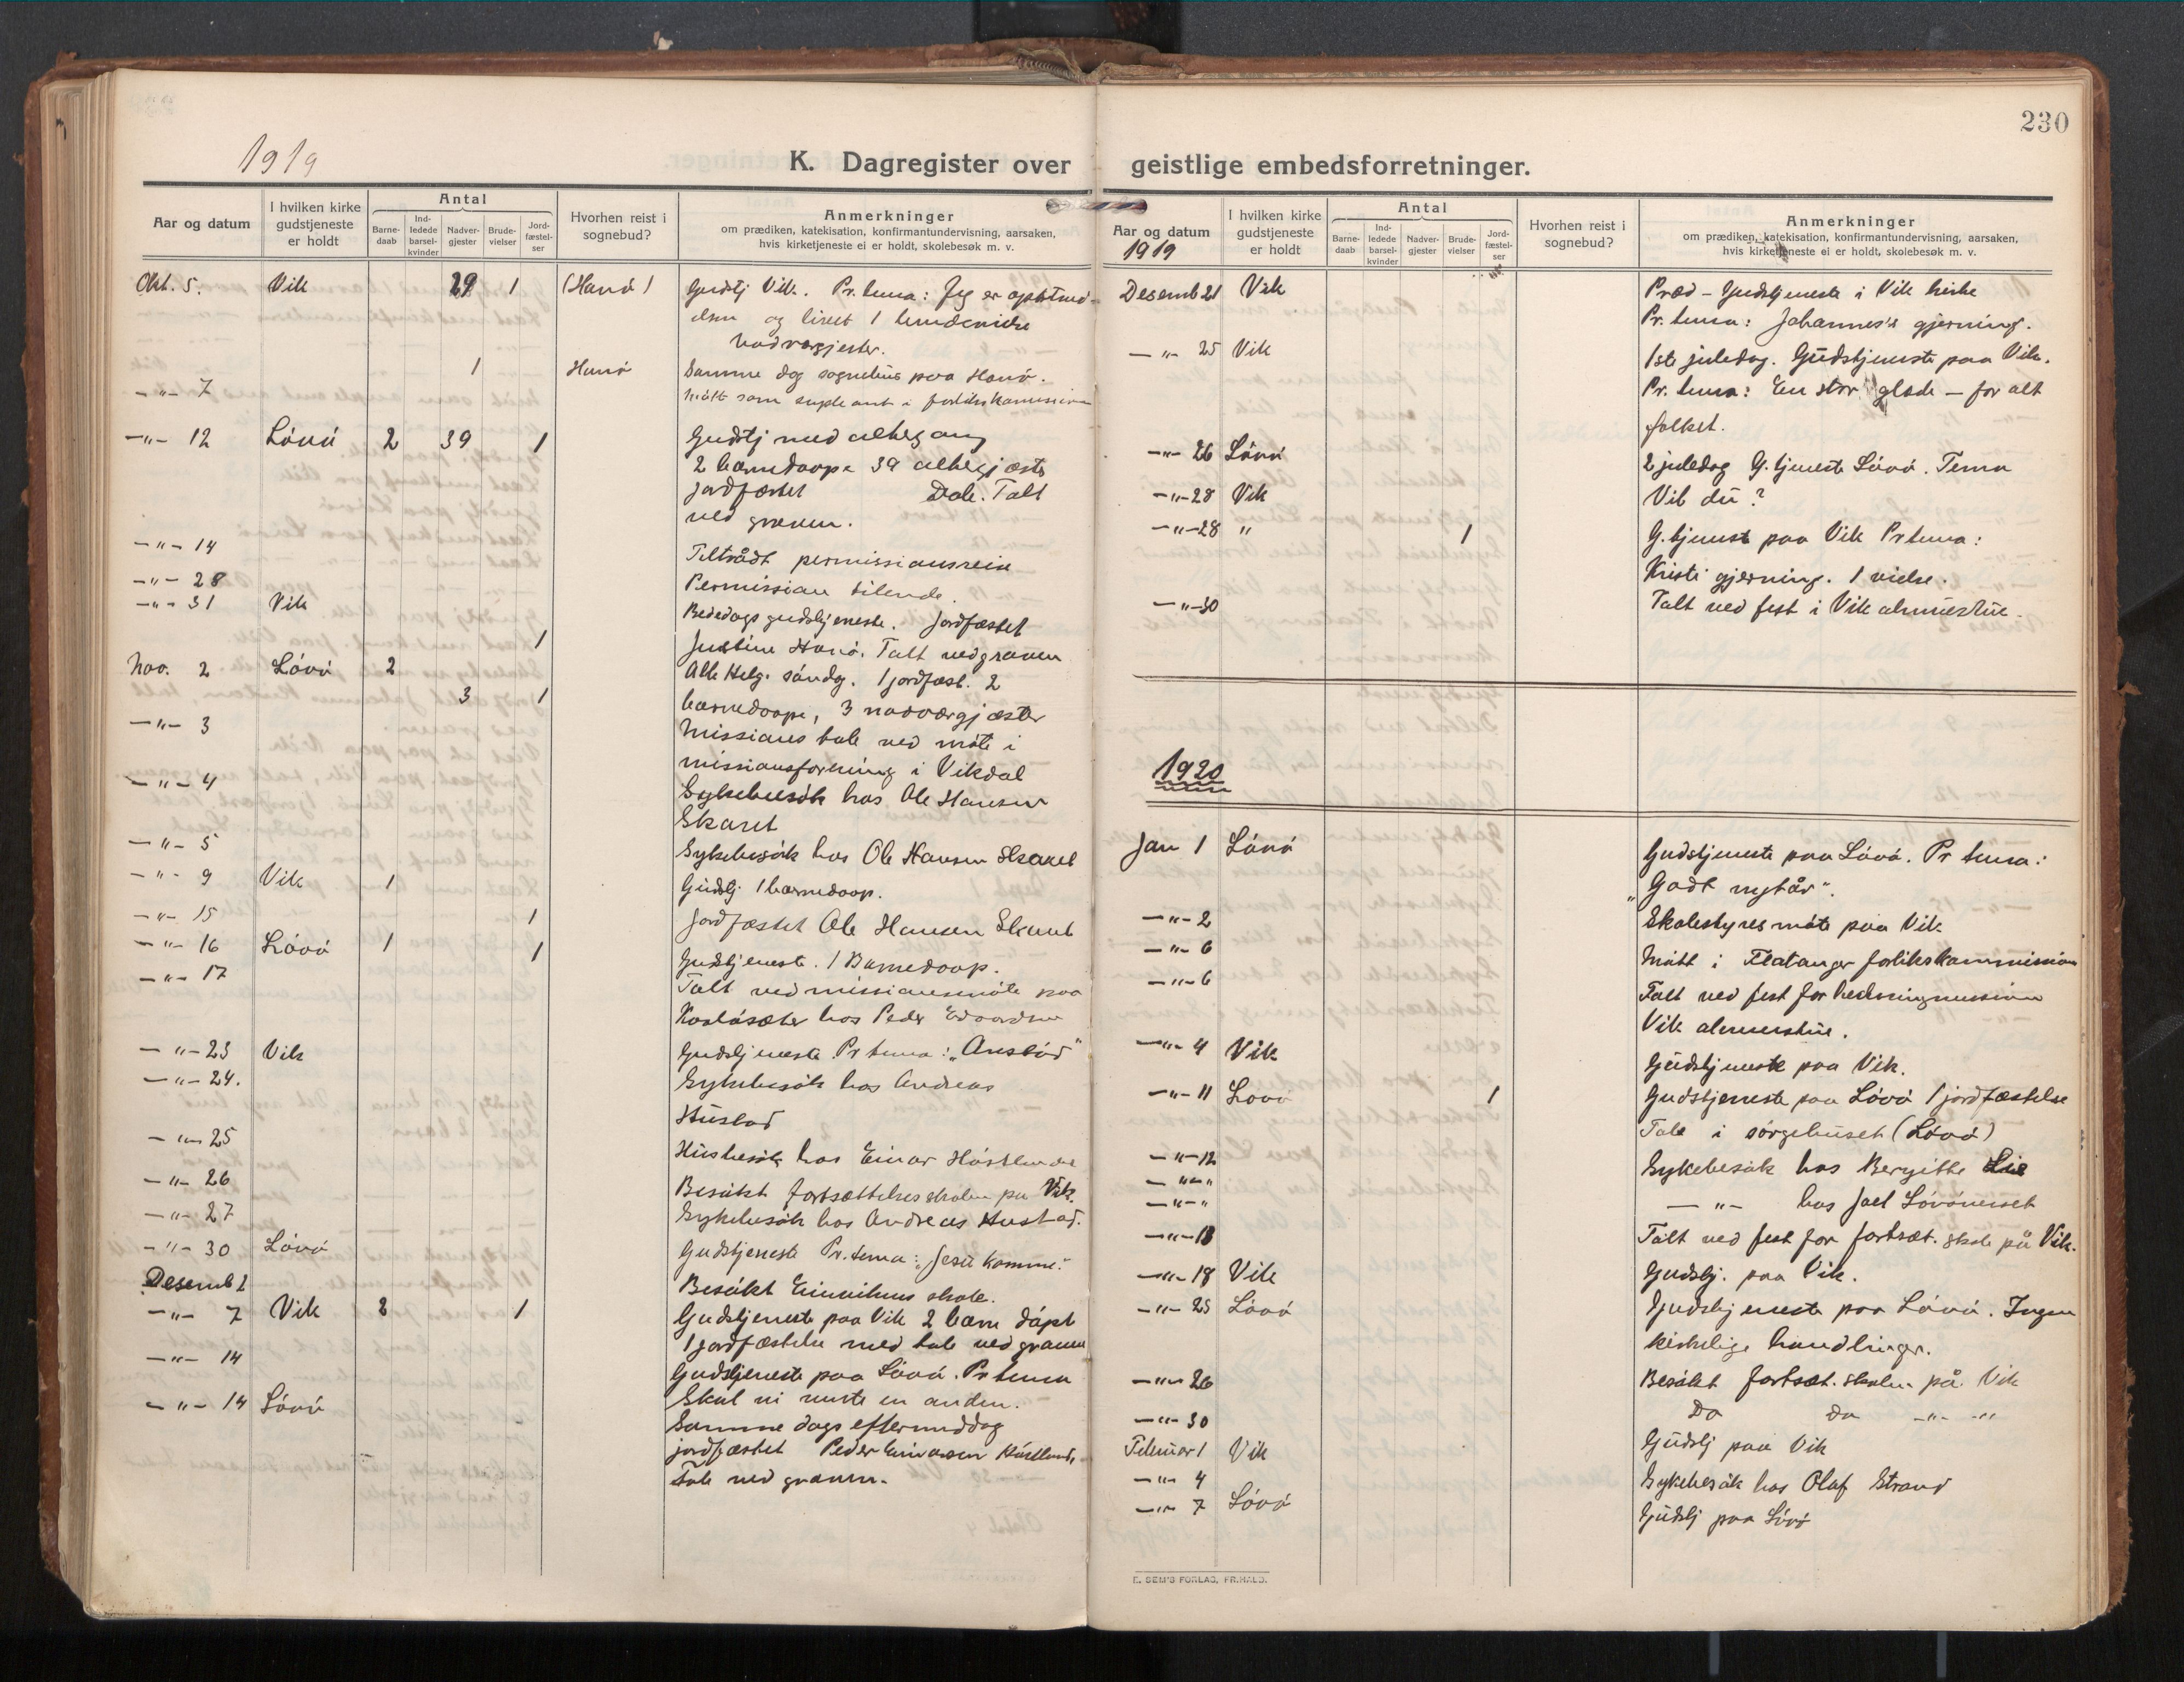 230
1919
K. Dagregister over geistlige embedsforretninger.
Aar og datum
I hvilken kirke gudstjeneste er holdt
Antal
Barne-daab
Ind-ledede barsel-kvinder
Nadver-gjester
Brude-vielser
Jord-fæstel-ser
Hvorhen reist i sognebud?
Anmerkninger
om prædiken, katekisation, konfirmantundervisning, aarsaken,
hvis kirketjeneste ei er holdt, skolebesøk m. v.
Okt. 5. Vik 29 1 (Hanö) Gudstj Vik. Pr. tema: Jeg er opstand-
elsen og livet 1
nadvergjester.
1 Hanö Samme dag sognebud paa Hanö.
-"- 7 Mött som i forlikskommission
-"- 12 Lövö 2 39 1 Gudstj med altergang
2 barnedoope 39 altergjæster
jordfæstet Dale. Talt
ved graven.
-"- 14 Tiltrådt permissionsreise
-"- 28 Permission tilende.
-"- 31 Vik Bededagsgudstjeneste. Jordfæstet
1 Justine Hanö. Talt ved graven
Nov. 2 Lövö 2 Alle Helg. söndg. 1 jordfæst. 2
3 1 barnedoope, 3 nadværgjæster
-"- 3 Missions tale ved möte i
missionsforening i Vikdal
-"- 4 Sykebesök hos Ole Hansen
Skaret
-"- 5 Sykebesök hos Ole Hansen Skaret
-"- 9 Vik 1 Gudstj. 1 barnedoop.
-"- 15 1 Jordfæstet Ole Hansen Skaret
-"- 16 Lövö 1 1 Gudstjeneste. 1 Barnedoop.
-"- 17 Talt ved missionsmöte paa
hos Peder Edvardsen
-"- 23 Vik Gudstjeneste. Pr tema: "Anslöd"
-"- 24. Sykebesök hos Andreas
Hustad
-"- 25 Husbesök hos Einar
-"- 26 Besökt fortsættelsesskolen paa Vik.
-"- 27 Sykebesök hos Andreas Hustad.
-"- 30 Lövö Gudstjeneste Pr. tema: "Jesu komme."
Desemb 2 Besökt skole.
-"- 7 Vik 2 1 Gudstjeneste paa Vik 2 barn döpt
1 jordfæstelse med tale ved graven
-"- 14 Gudstjeneste paa Lövö. Pr tema
-"- 14 Lövö Skal vi vente en anden.
Samme dags eftermiddag
jordfæstet Peder
Tale ved graven.
Aar og datum
1919
I hvilken kirke gudstjeneste er holdt
Antal
Barne-daab
Ind-ledede barsel-kvinder
Nadver-gjester
Brude-vielser
Jord-fæstel-ser
Hvorhen reist i sognebud?
Anmerkninger
om prædiken, katekisation, konfirmantundervisning, aarsaken,
hvis kirketjeneste ei er holdt, skolebesøk m. v.
Desemb 21 Vik Præd - Gudstjeneste i Vik kirke
Pr. tema: Johannes's gjerning.
-"- 25 Vik 1ste juledag. Gudstjeneste paa Vik.
Pr. tema: En stor glæde - for alt
folket.
-"- 26 Lövö 2 juledag G. tjeneste Lövö. Tema
-"- 28 Vik Vil du?
-"- 28 " 1 G. tjeneste paa Vik Pr tema:
Kristi gjerning. 1 vielse.
-"- 30 Talt ved fest i Vik almuestue.
1920
Jan 1 Lövö Gudstjeneste paa Lövö. Pr tema:
"Godt nytår".
-"- 2 Skolestyresmöte paa Vik
-"- 6 Mött i Flatanger forlikskommission
-"- 6 Talt ved fest for hedningmission
Vik almuestue.
-"- 4 Vik Gudstjeneste paa Vik.
-"- 11 Lövö 1 Gudstjeneste paa Lövö 1 jordfæstelse
Tale i sörgehuset (Lövö)
-"- 12 Sykebesök hos Bergitte Lie
-"- " -"- hos Joel Lövöneset
-"- "
-"- 18 Talt ved fest for fortsæt. skole på Vik.
-"- 18 Vik Gudstj. paa Vik.
-"- 25 Lövö Gudstjeneste paa Lövö. Ingen
kirkelige handlinger.
-"- 26 Besökt fortsæt. skolen på Vik
-"- 30 Do Do -"- -"-
Februar 1 Vik Gudstj paa Vik
-"- 4 Sykebesök hos Olaf Strand
-"- 7 Lövö Gudstj paa Lövö
E. SEM'S FORLAG, FR.HALD.